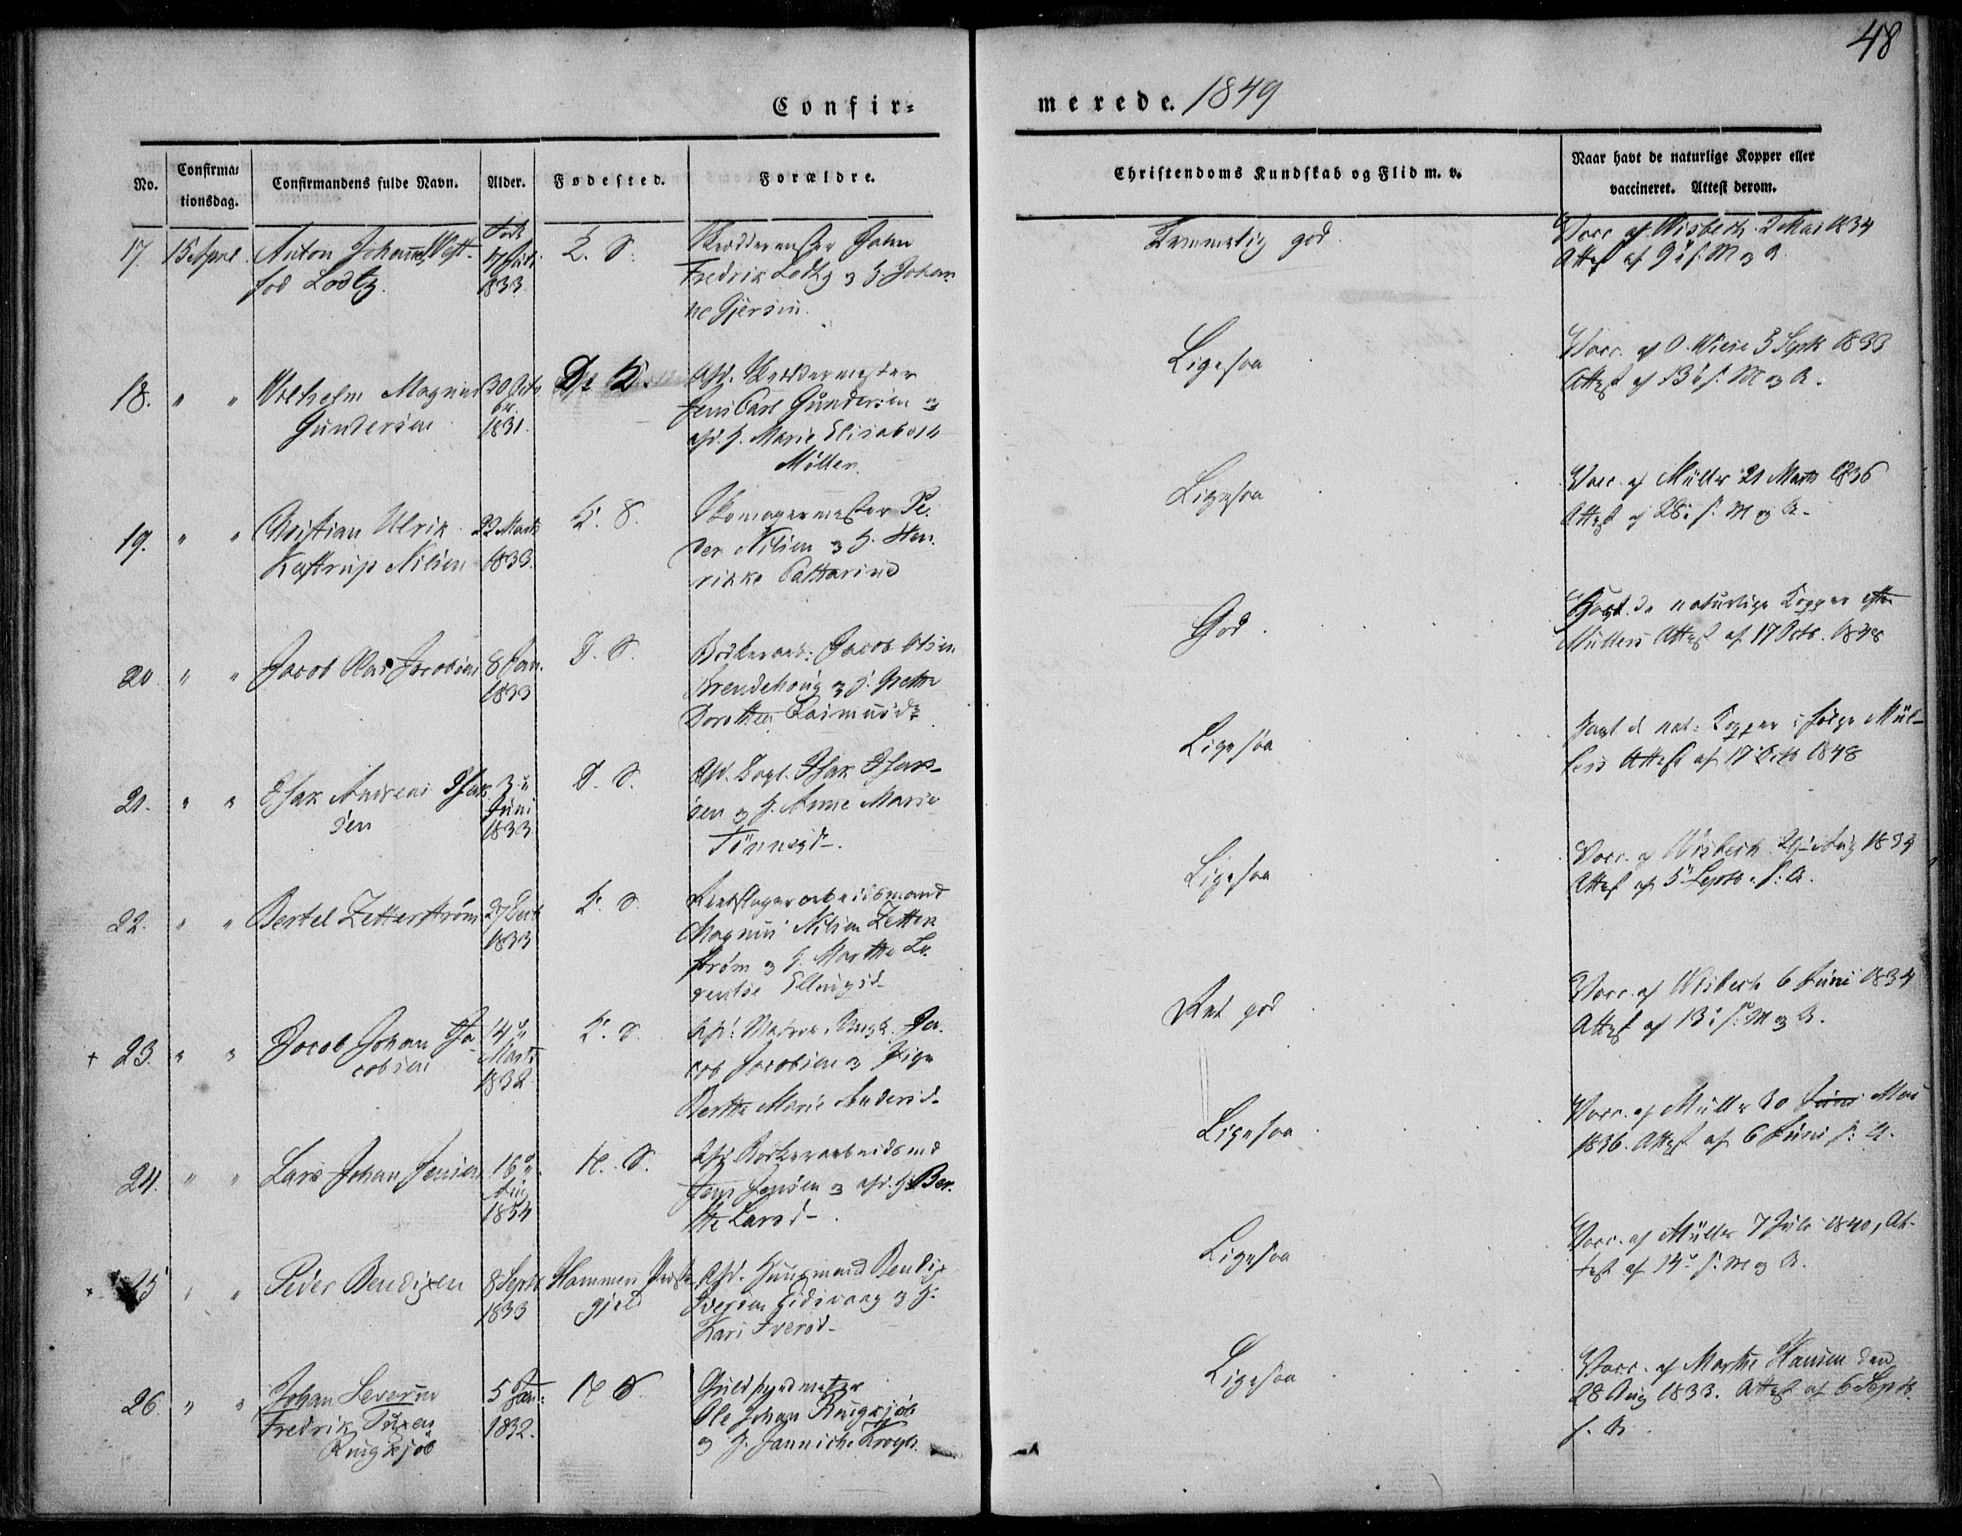 48
Confir=
merede. 1849
No.
Confirma=
tionsdag.
Confirmandens fulde Navn.
Alder.
Fødested.
Forældre.
Christendoms Kundskab og Flid m. v.
Naar havt de naturlige Kopper eller
vaccineret. Attest derom.
17. 15 April Anton Johannes
Lodtz
Født
17
1833
K. S.
John
Fredrik Lodtz og H. Johan
ne Gjersen
Temmelig god
Vacc. af Wisbech 2 Mai 1834
Attest af 9 s. M og A.
18. " " Wilhelm Magnus
Gundersen
30 Octo
br.
1831.
D. K.
Afd. Skræddermester
Jens Carl Gundersen og
afd. H. Marie Elisabeth
Møller.
Ligesaa
Vacc. af O. Wiese 3 Sept 1833
Attest af 13 s. M og A.
19. " " Christian Ulrik
Kastrup Nilsen
22 Marts
1833.
K. S.
Skomagermester Pe
der Nilsen og H. Hen
rikke Catharine
Ligesaa
Vacc. af Müller 21 Marts 1836
Attest af 28 s. M og A.
20 " " Jacob Olai Jacobsen
8 Jan.
1833
D. S.
Jacob Olsen
og H. Grethe
Dorothea Rasmusd
God.
Havt de naturlige Kopper efter
Müllers Attest af 17 Octb. 1848
21. " " Isak Andreas Isak
sen
3
Juni
1833
D. S.
Afd. Isak Isak
sen og H. Anne Marie
Tønnesd
Ligesaa
Havt d nat. Kopper i følge Mül
lers Attest af 17 Octb 1848
22. " " Bertel Zetterstrøm
27
1833
K. S.
Magnus Nilsen Zetter
strøm og H. Marthe La
rentse Ellingsd
Ligesaa
Vacc. af Wisbech Aug 1834
Attest af 5 Septb. s. A.
+ 23. " " Jacob Johan Ja
cobsen
14
Marts
1832
K. S.
Ja
cob Jacobsen og Pige
Berthe Marie Andersd
Ret god
Vacc. af Wisbech 6 Juni 1834
Attest af 13 s. M og A.
24. " " Lars Johan Jensen
16
Aug
1834
N. S.
Afd
Jens Jensen og afd. H. Ber
the Larsd
Ligesaa
Vacc. af Müller 30 Juni Mai
1836. Attest af 6 Juni s. A.
+ 25 " " Peder Bendixen
8 Septb
1833
Hammer Præste
gjeld
Afd. Huusmand Bendix
Iversen Eidsvaag og H.
Kari Iversd
Ligesaa
Vacc. af Müller 7 Juli 1840, At
test af 14 s. M og A.
26 " " Johan Severin
Fredrik Tuxen
Ringkjøb
5 Jan:
1832.
N S.
Guldsmedmester
Ole Johan Ringkjøb
og H. Jannicke Krogh
Ligesaa
Vacc. af Marthe Hansen den
28 Aug 1833. Attest af 6 Septb.
s. A.